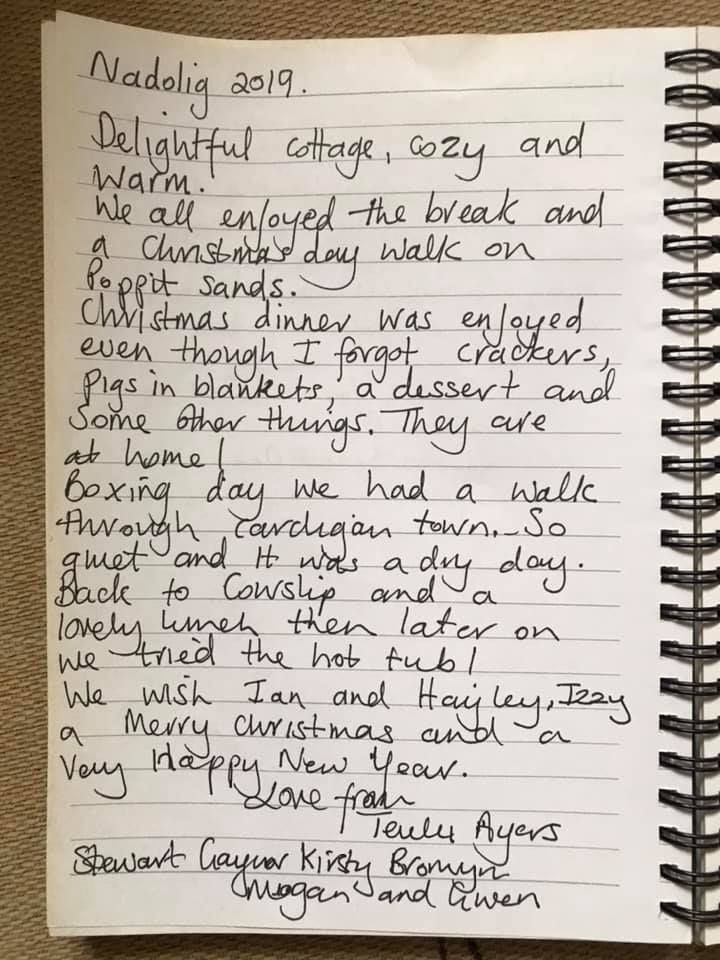 Nadolig 2019.
Delightful cottage, cozy and
warm.
We all enjoyed the break and
a Christmas day walk on
Poppit sands.
Christmas dinner was enjoyed
even though I forgot crackers,
pigs in blankets, a dessert and
some other things. They are
at home!
Boxing day we had a walk
through Cardigan town. So
quiet and it was a dry day.
Back to Cowslip and a
lovely lunch then later on
we tried the hot tub!
We wish Ian and Hayley, Izzy
a Merry Christmas and a
Very Happy New Year.
Love from
Teulu Ayers
Stewart Gaynor Kirsty Bronwyn
Megan and Gwen